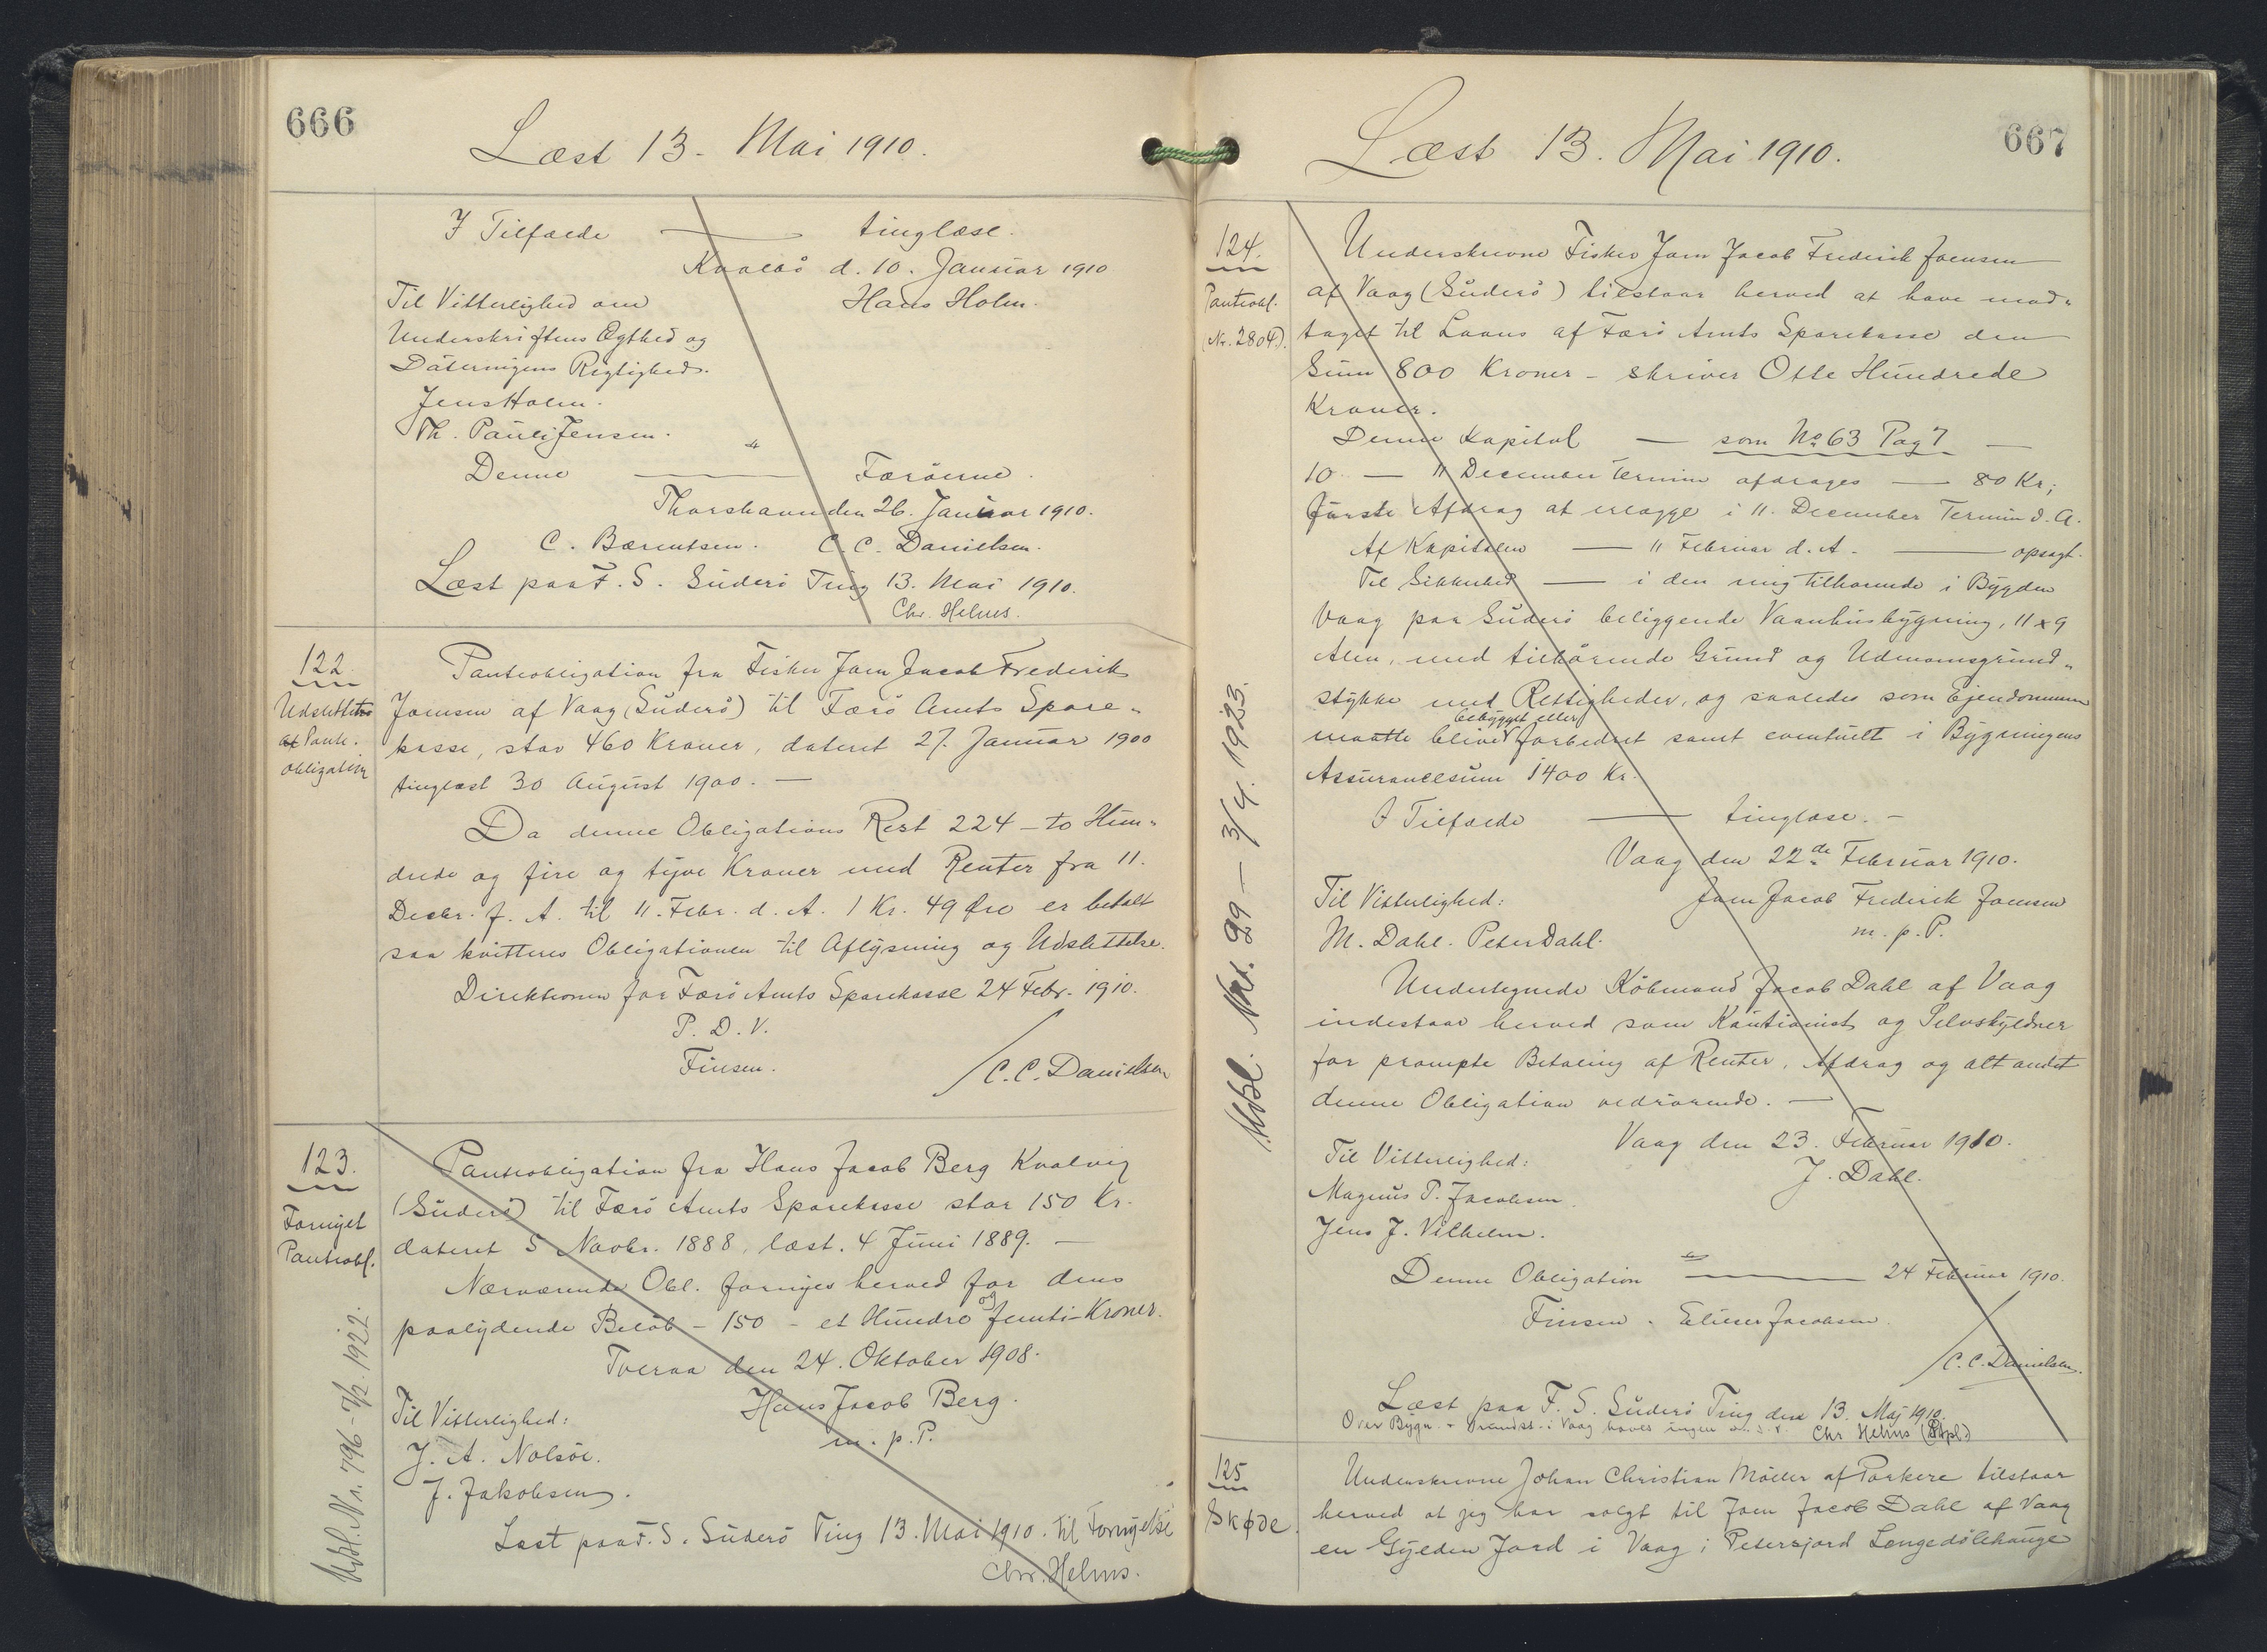 666
Læst 13. Mai 1910.
I Tilfælde — tinglæse.
Kvalbö d. 10. Januar 1910
Til Vitterlighed om
Hans Holm.
Underskriftens Ægthed og
Dateringens Rigtighed.
Jens Holm.
Th. Pauli Jensen.
Denne — Færöerne.
Thorshavn den 26. Januar 1910.
C. Bærentsen. C. C. Danielsen.
Læst paa F. S. Suderö Ting 13. Mai 1910.
Chr. Helms.
122.
Udslettelse
af Pante-
obligation
Panteobligation fra Fisker Joen Jacob Frederik
Joensen af Vaag (Suderö) til Færö Amts Spare-
kasse, stor 460 Kroner, dateret 27. Januar 1900
tinglæst 30 August 1900. —
Da denne Obligations Rest 224 - to Hun-
drede og fire og tyve Kroner med Renter fra 11.
Decbr. f. A. til 11. Febr. d. A. 1 Kr. 49 Øre er betalt
saa kvitteres Obligationen til Aflysning og Udslettelse.
Direktionen for Færö Amts Sparekasse 24 Febr. 1910.
P. D. V.
Finsen.
/C. C. Danielsen
123.
Fornyet
Panteobl.
Udsl. Nr. 796 - 7/2. 1922.
Panteobligation fra Hans Jacob Berg Kvalvig
(Suderö) til Færö Amts Sparekasse stor 150 Kr.
dateret 5 Novbr. 1888, læst. 4 Juni 1889. —
Nærværende Obl. fornyes herved for dens
paalydende Belöb - 150 - et Hundre og femti Kroner.
Tveraa den 24. Oktober 1908.
Hans Jacob Berg.
m. p. P.
Til Vitterlighed:
J. A. Nolsöe.
J. Jakobsen.
Læst paa F. S. Suderö Ting 13. Mai 1910. til Fornyelse
Chr. Helms.
667
Læst 13. Mai 1910.
124.
Panteobl.
(Nr. 2804).
Udsl. Nr. 99 — 3/4. 1923.
Underskrevne Fisker Joen Jacob Frederik Joensen
af Vaag (Suderö) tilstaar herved at have mod-
taget til Laans af Færö Amts Sparekasse den
Sum 800 Kroner - skriver Otte Hundrede
Kroner.
Denne Kapital — som No 63 Pag 7 —
10 — 11 December Termin afdrages — 80 Kr;
förste Afdrag at erlægge i 11. December Termin d. A.
Af Kapitalen — 11 Februar d. A. — opsagt.
Til Sikkerhed — i den mig tilhörende i Bygden
Vaag paa Suderö beliggende Vaanhusbygning, 11 x 9
Alen, med tilhörende Grund og Udenomsgrund-
stykke med Rettigheder, og saaledes som Ejendommen
maatte blive bebygget eller forbedret samt eventuelt i Bygningens
Assurancesum 1400 Kr.
I Tilfælde — tinglæse. —
Vaag den 22de Februar 1910.
Til Vitterlighed:
Joen Jacob Frederik Joensen
m. p. P.
M. Dahl. Peter Dahl.
Undertegnede Köbmand Jacob Dahl af Vaag
indestaar herved som Kautionist og Selvskyldner
for prompte Betaling af Renter, Afdrag og alt andet
denne Obligation vedrörende. —
Vaag den 23. Februar 1910.
Til Vitterlighed:
J. Dahl.
Magnus P. Jacobsen.
Jens J. Vilhelm.
Denne Obligation — 24 Februar 1910.
Finsen. Elieser Jacobsen.
/C. C. Danielsen.
Læst paa F. S. Suderö Ting den 13. Maj 1910.
Over Bygn. i Vaag haves ingen
Chr Helms
125
Skøde.
Underskrevne Johan Christian Möller af Porkere tilstaar
herved at jeg har solgt til Joen Jacob Dahl af Vaag
en Gylden Jord i Vaag i Petersjord Longedölehauge